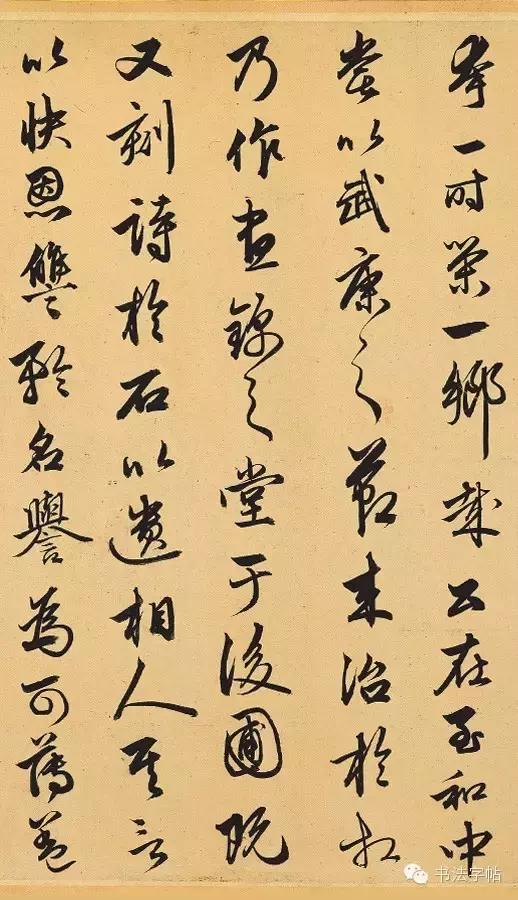 夸一時榮一鄉哉公在至和中
嘗以武康之節來治於相
乃作晝錦之堂于後圃既
又刻詩於石以遺相人其言
以快恩讐矜名譽為可薄蓋
书法字帖